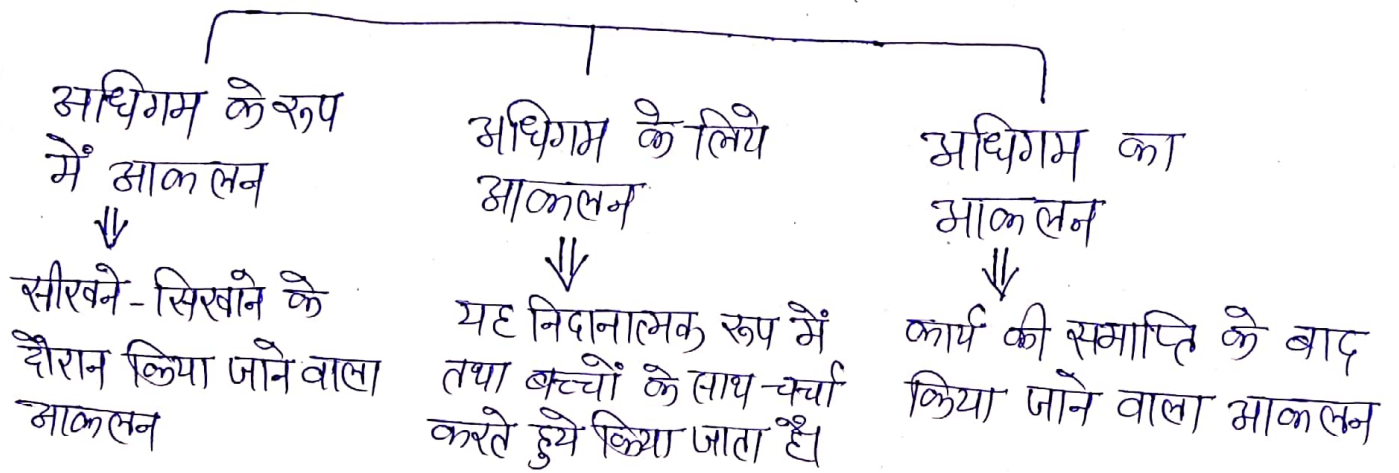 अधिगम के रूप
में आकलन
सीखने-सिखाने के
दौरान किया जाने वाला
आकलन
अधिगम के लिये
आकलन
यह निदानात्मक रूप में
तथा बच्चों के साथ चर्चा
करते हुये किया जाता है।
अधिगम का
आकलन
कार्य की समाप्ति के बाद
किया जाने वाला आकलन